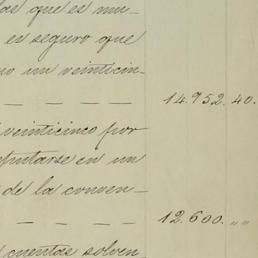 las que es mu-
es seguro que
no un veinticin-
— — — — 14.952.40.
veinticinco por
eputarse en un
de la conven-
— — — — 12.600. „ „
cuentas solven-